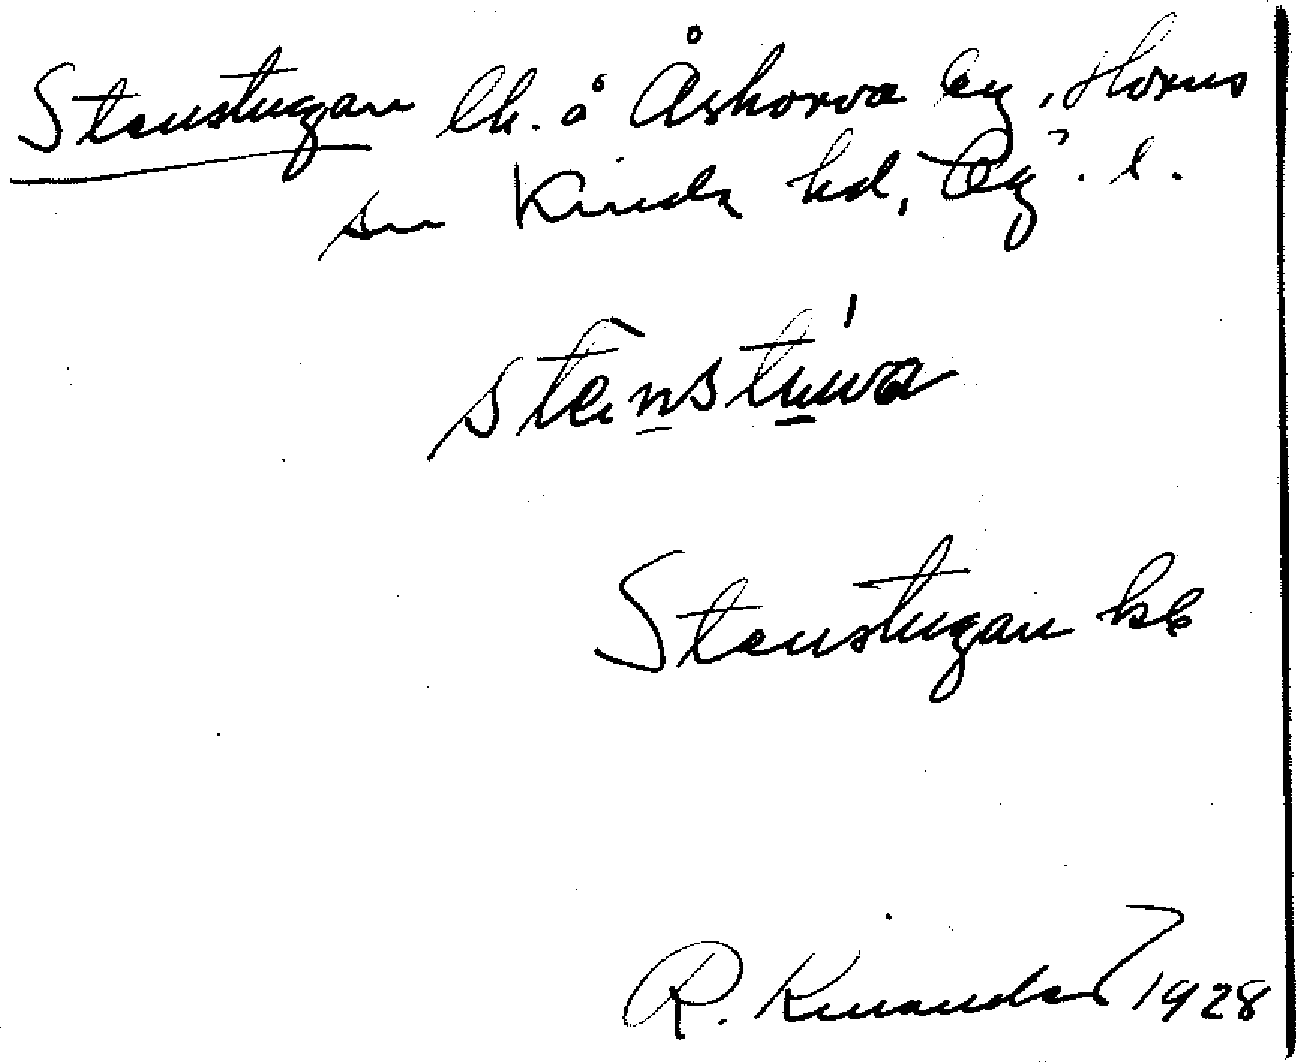 Stenstugan lh. å Åskorva äg., Horns
sn Kinda hd, Ög. l.
stēnstúwa
Stenstugan kb
R. Kinander 1928